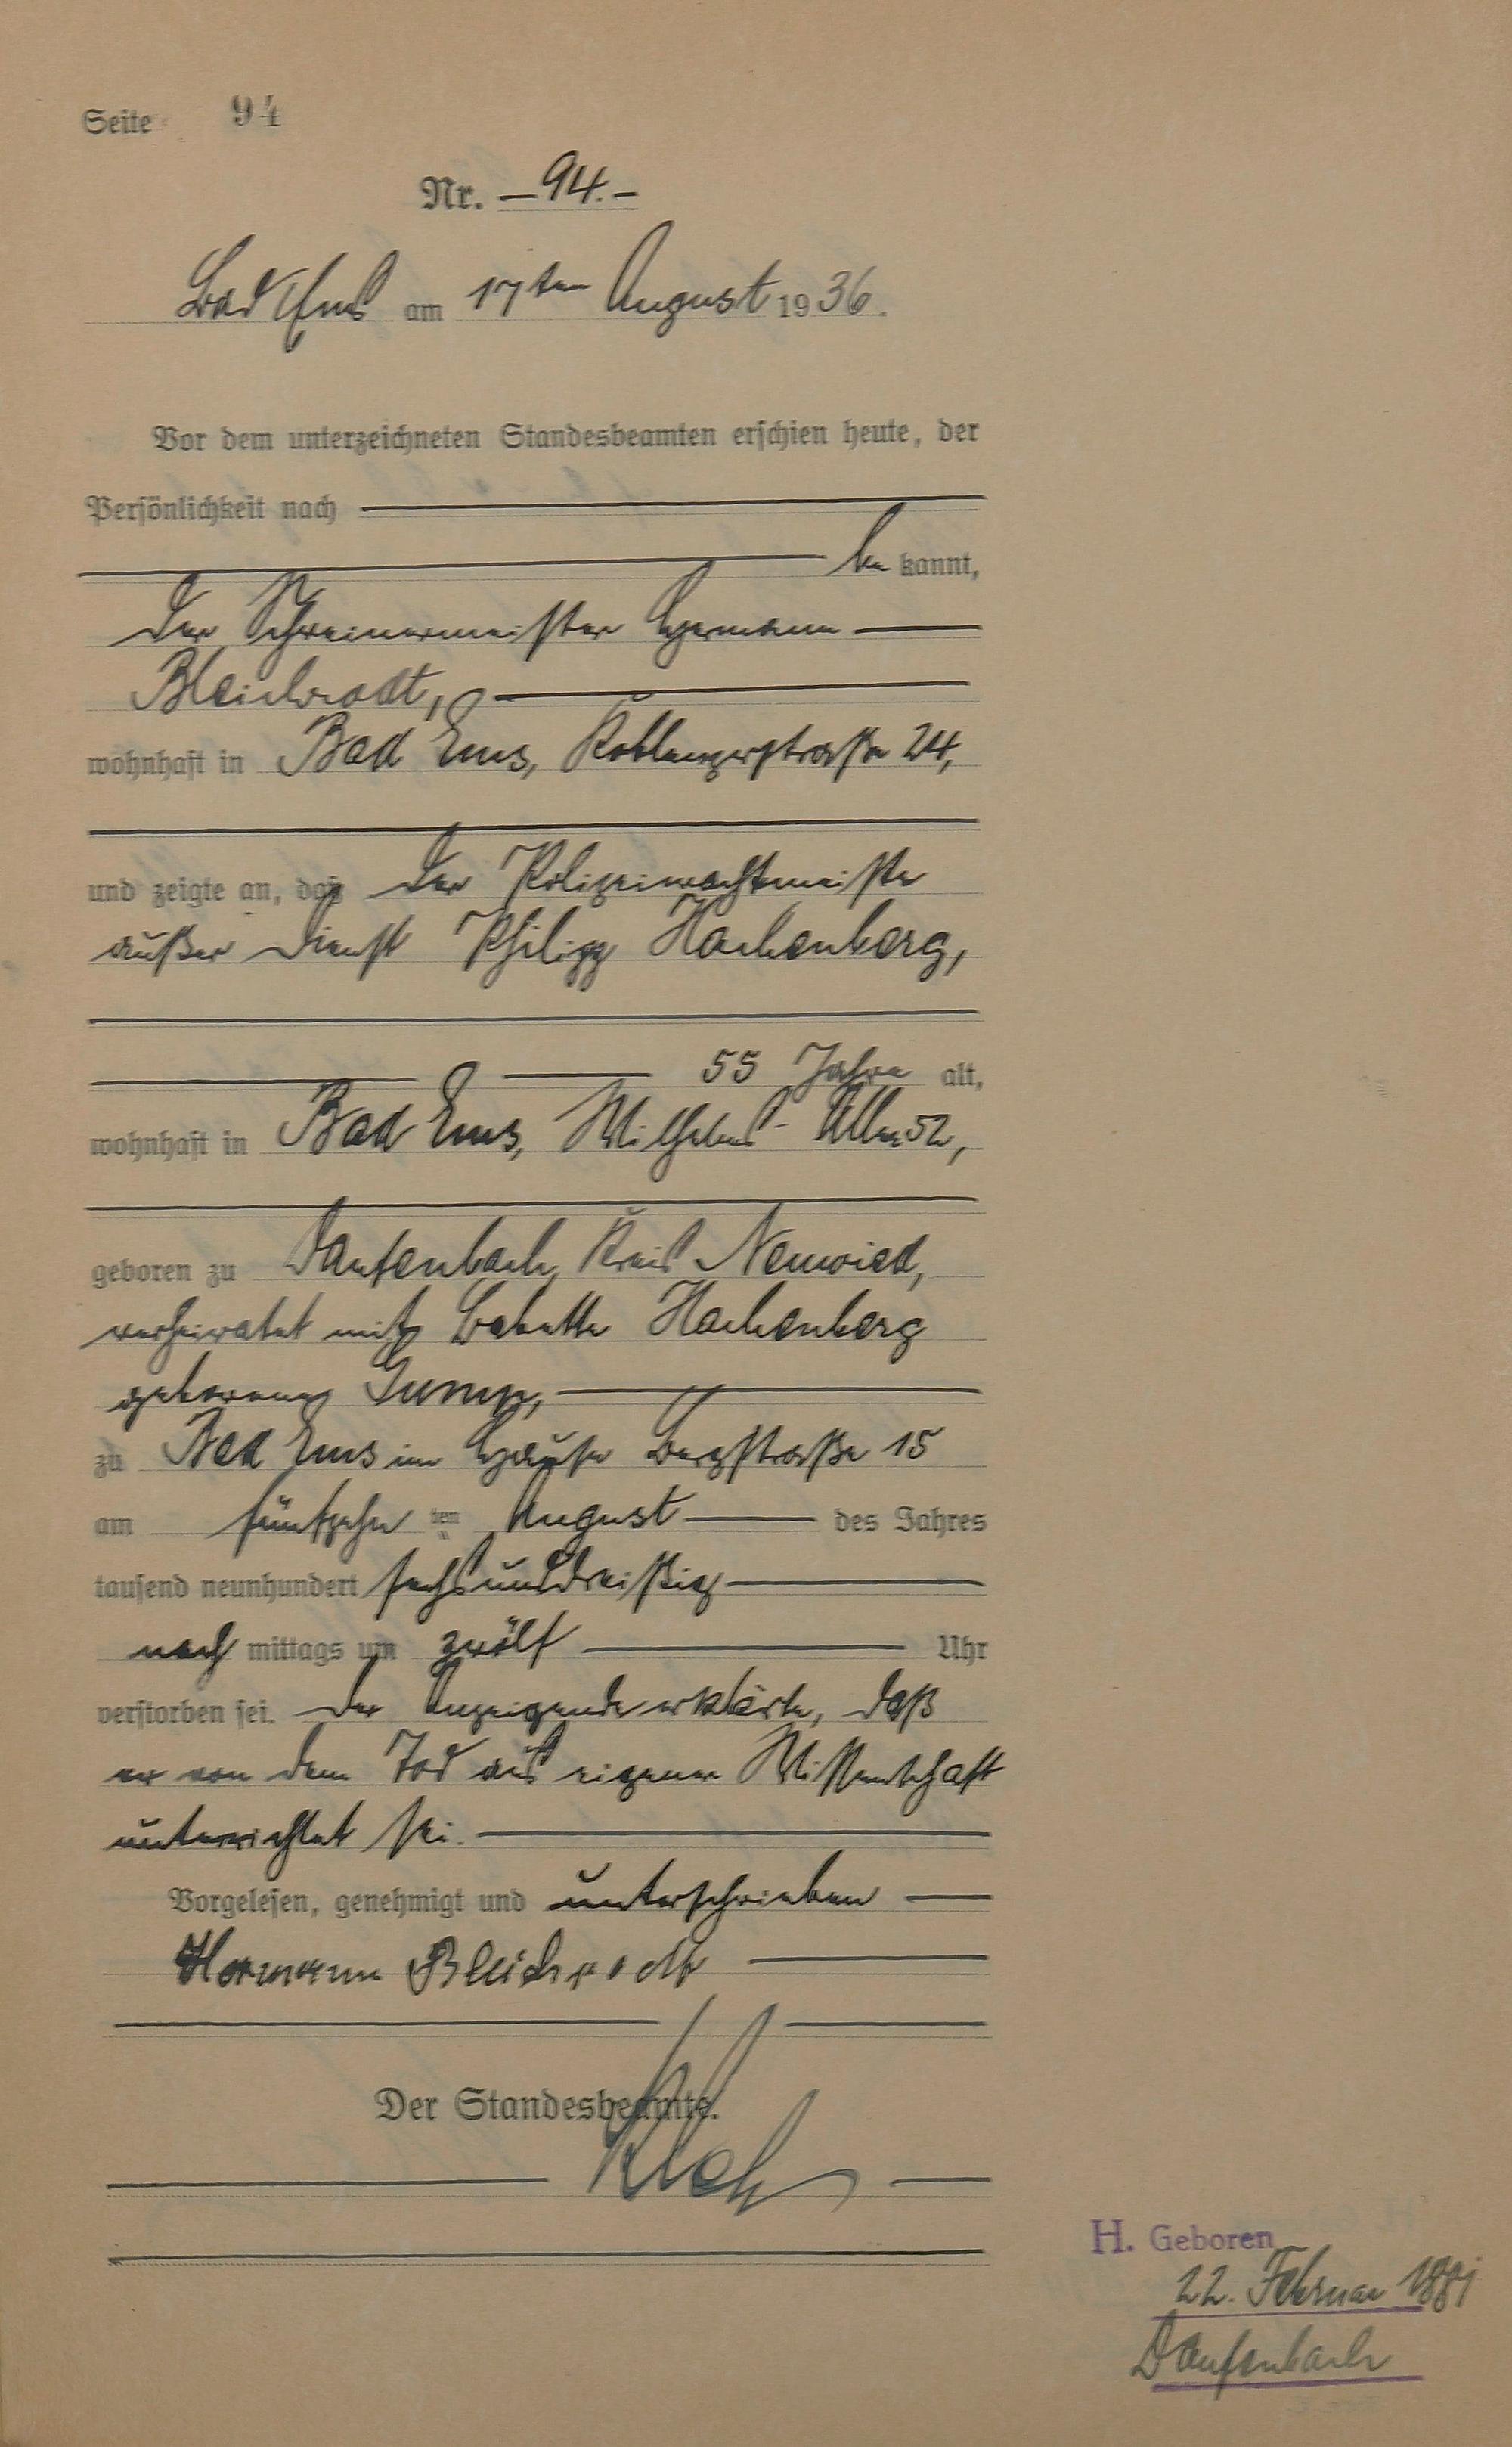 Seite 94
Nr. — 94. —
Bad Ems am 17ten August 1936.
Vor dem unterzeichneten Standesbeamten erschien heute, der
Persönlichkeit nach
be kannt,
der Schreinermeister Hermann
Bleichrodt,
wohnhaft in Bad Ems, Koblenzerstraße 24,
und zeigte an, daß der Polizeiwachtmeister
außer Dienst Philipp Hachenberg,
55 Jahre alt,
wohnhaft in Bad Ems, Wilhelms-Allee 52,
geboren zu Daufenbach, Kreis Neuwied,
verheiratet mit Babette Hachenberg
geborene Gump,
zu Bad Ems im Hause Bergstraße 15
am fünfzehn ten August des Jahres
tausend neunhundert sechsunddreißig
nach mittags um zwölf Uhr
verstorben sei. Der Anzeigende erklärte, daß
er von dem Tod aus eigener Wissenschaft
unterrichtet sei.
Vorgelesen, genehmigt und unterschrieben
Hermann Bleichrodt
Der Standesbeamte.
H. Geboren
22. Februar 1881
Daufenbach